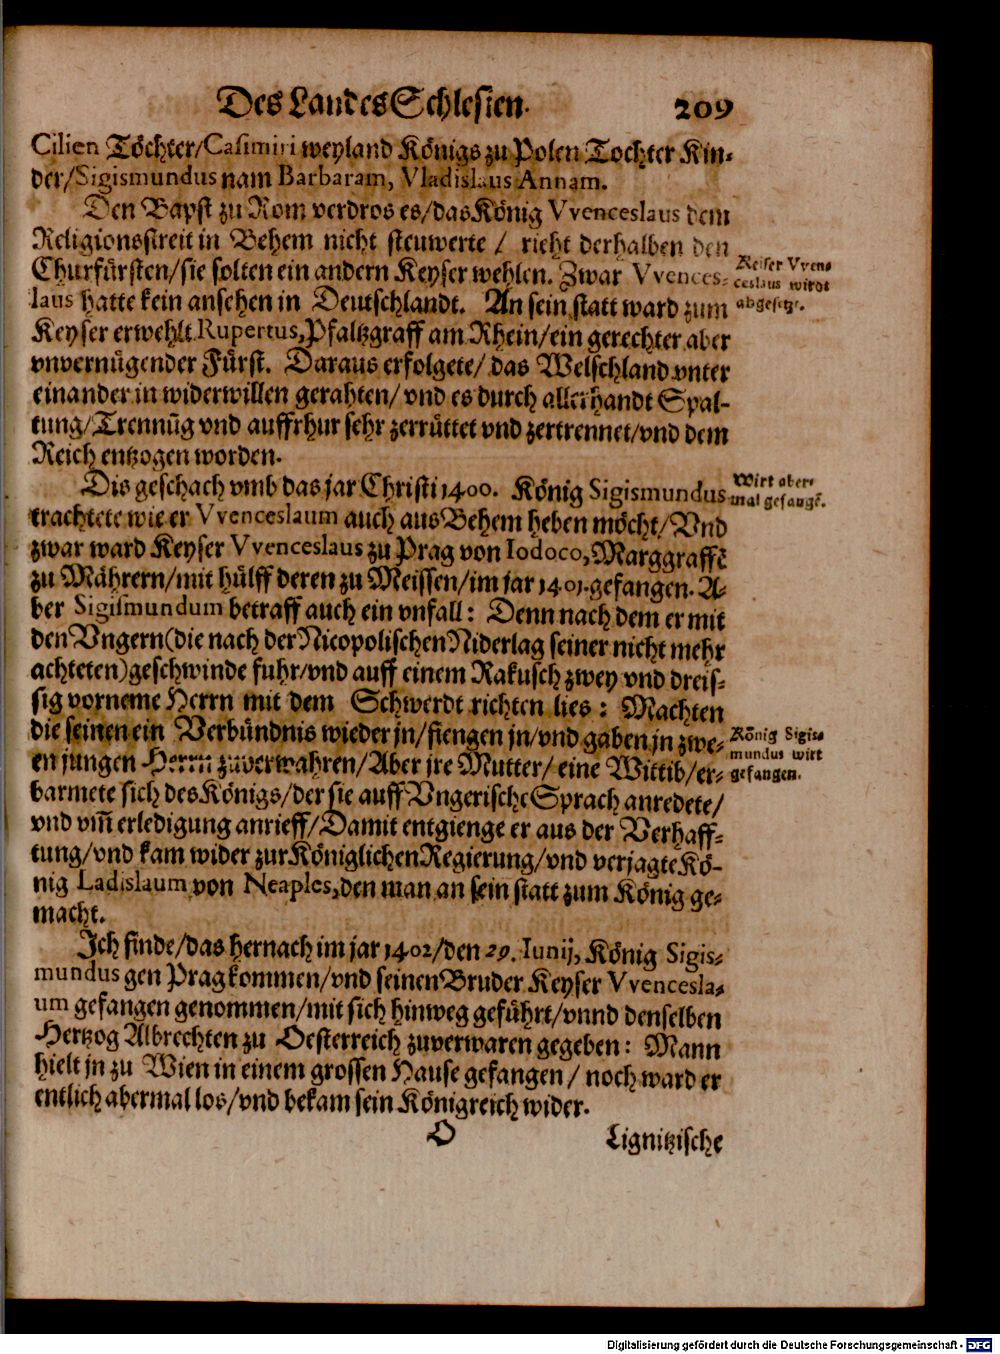 Des Landes Schlesien. 209
Cilien Töchter/Casimiri weyland Königs zu Polen Tochter Kin-
der/Sigismundus nam Barbaram, Vladislaus Annam.
Den Bapst zu Rom verdros es/das König VVenceslaus dem
Religionsstreit in Behem nicht steuwerte / rieht derhalben den
Churfürsten/sie solten ein andern Keyser wehlen. Zwar VVences-
laus hatte kein ansehen in Deutschlandt. An sein statt ward zum
Keyser erwehlt Rupertus, Pfaltzgraff am Rhein/ein gerechter aber
vnvernügender Fürst. Daraus erfolgete/ das Welschland vnter
einander in widerwillen gerahten/ vnd es durch allerhandt Spal-
tung/Trennūg vnd auffrhur sehr zerrüttet vnd zertrennet/vnd dem
Reich entzogen worden.
Keiser VVen-
ceslaus wirdt
abgesetzt.
Dis geschach vmb das jar Christi 1400. König Sigismundus
trachtete wie er VVenceslaum auch aus Behem heben möcht/Vnd
zwar ward Keyser VVenceslaus zu Prag von Iodoco, Marggraffē
zu Mährern/mit hülff deren zu Meissen/im jar 1401. gefangen. A-
ber Sigismundum betraff auch ein vnfall: Denn nach dem er mit
den Vngern(die nach der Nicopolischen Niderlag seiner nicht mehr
achteten)geschwinde fuhr/vnd auff einem Rakusch zwey vnd dreis-
sig vorneme Herrn mit dem Schwerdt richten lies: Machten
die seinen ein Verbündnis wieder jn/fiengen jn/vnd gaben jn zwe-
en jungen Herrn zuverwahren/Aber jre Mutter/ eine Wittib/er-
barmete sich des Königs/der sie auff Vngerische Sprach anredete/
vnd vm̄ erledigung anrieff/Damit entgienge er aus der Verhaff-
tung/vnd kam wider zur Königlichen Regierung/vnd verjagte Kö-
nig Ladislaum von Neaples, den man an sein statt zum König ge-
macht.
Wirt aber-
mal gefangē.
König Sigis-
mundus wirt
gefangen.
Ich finde/das hernach im jar 1402/den 29. Iunij, König Sigis-
mundus gen Prag kommen/vnd seinen Bruder Keyser VVencesla-
um gefangen genommen/mit sich hinweg geführt/vnnd denselben
Hertzog Albrechten zu Oesterreich zuverwaren gegeben: Mann
hielt jn zu Wien in einem grossen Hause gefangen / noch ward er
entlich abermal los/vnd bekam sein Königreich wider.
O Lignitzische
Digitalisierung gefördert durch die Deutsche Forschungsgemeinschaft - DFG